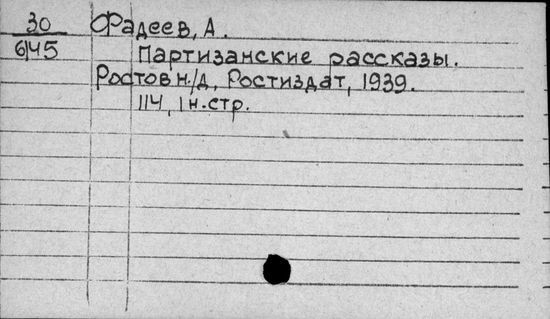 30 Фадеев, А.
6145 Партизанские рассказы.
Ростов н/Д, Ростиздат, 1939.
114, 1 н.стр.